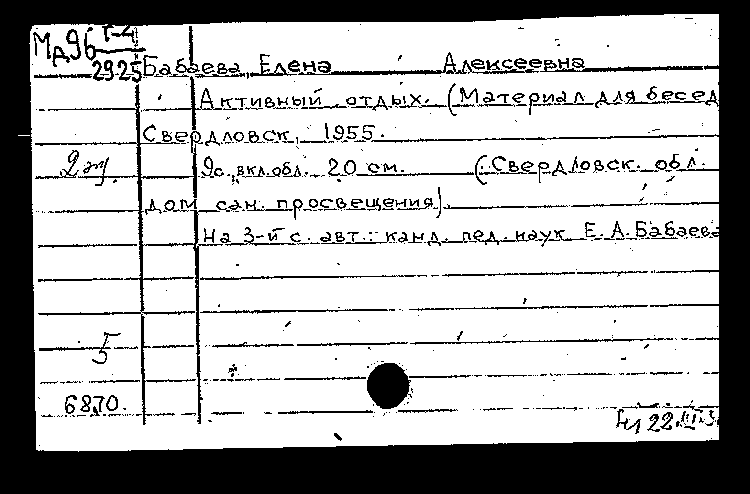 Мд96 Г-4
2925 Бабаева, Елена Алексеевна
Активный отдых. (Материал для бесед
Свердловск, 1955.
2 эк. 9с. вкл. обл. 20 см. (Свердловск. обл.
дом сан. просвещения).
На 3-й с. авт.: канд. пед. наук Е. А. Бабаева
5
6870.
22.III.